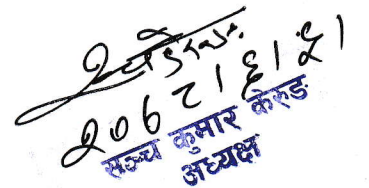 २०६८।६।५।
सञ्च कुमार केरुङ
अध्यक्ष